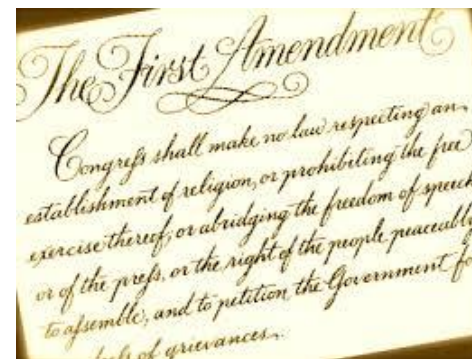 The First Amendment
Congreſs shall make no law respecting an
establishment of religion, or prohibiting the free
exercise thereof; or abridging the freedom of speech
or of the preſs, or the right of the people peaceably
to aſsemble, and to petition the Government fo
of grievances.